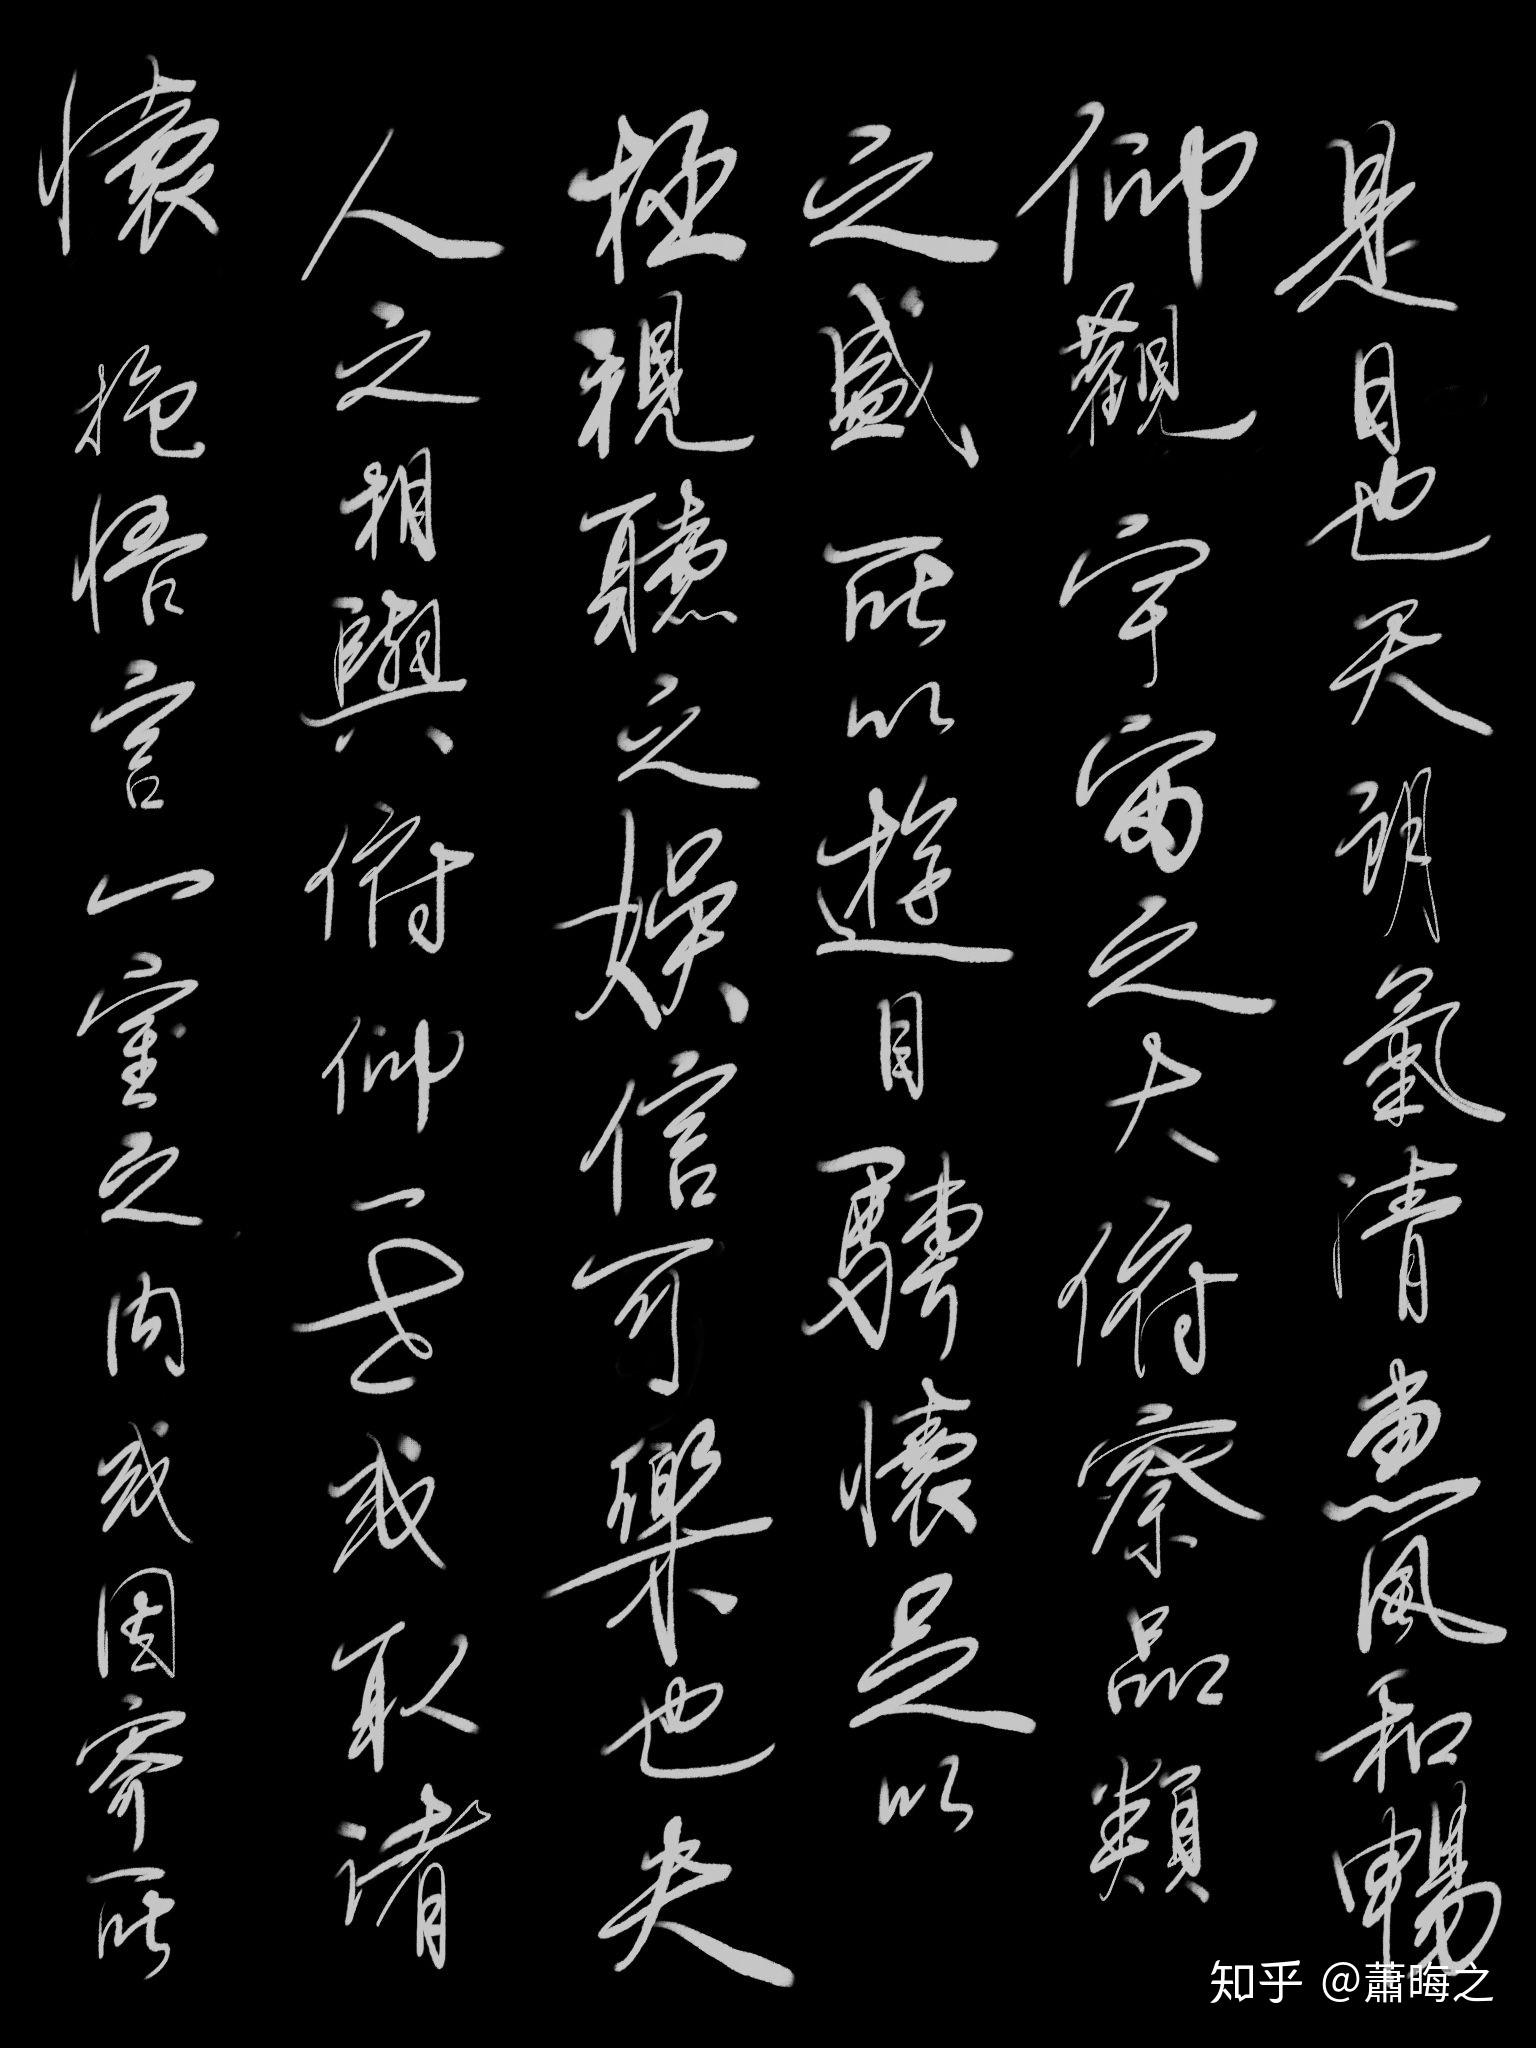 是日也天朗氣清惠風和暢
仰觀宇宙之大俯察品類
之盛所以遊目騁懷足以
極視聽之娛信可樂也夫
人之相與俯仰一世或取諸
懷抱悟言一室之內或因寄所
知乎 @蕭晦之